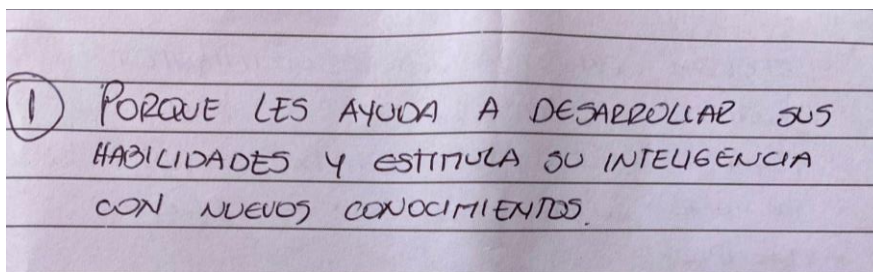 ① PORQUE LES AYUDA A DESARROLLAR SUS
HABILIDADES Y ESTIMULA SU INTELIGENCIA
CON NUEVOS CONOCIMIENTOS.